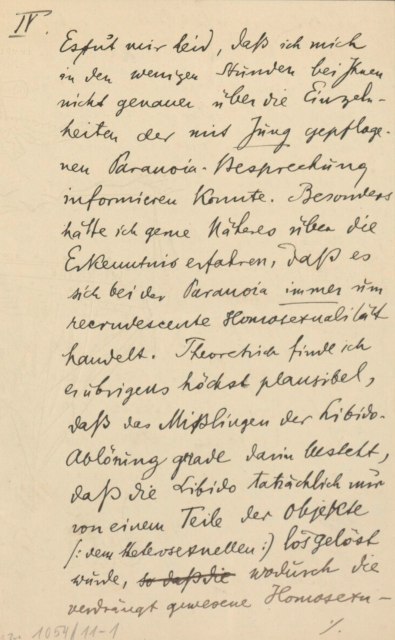 IV.
Es tut mir leid, daß ich mich
in den wenigen Stunden bei Ihnen
nicht genauer über die Einzeln-
heiten der mit Jung gepfloge-
nen Paranoia-Besprechung
informieren konnte. Besonders
hätte ich gerne Näheres über die
Erkenntnis erfahren, daß es
sich bei der Paranoia immer um
recrudescente Homosexualität
handelt. Theoretisch finde ich
es übrigens höchst plausibel,
daß das Mißlingen der Libido-
Ablösung grade darin besteht,
daß die Libido tatsächlich nur
von einem Teile der Objekte
(: dem Heterosexuellen :) losgelöst
würde, so daß die wodurch die
verdrängt gewesene Homosexu-
./.
1054/11-1